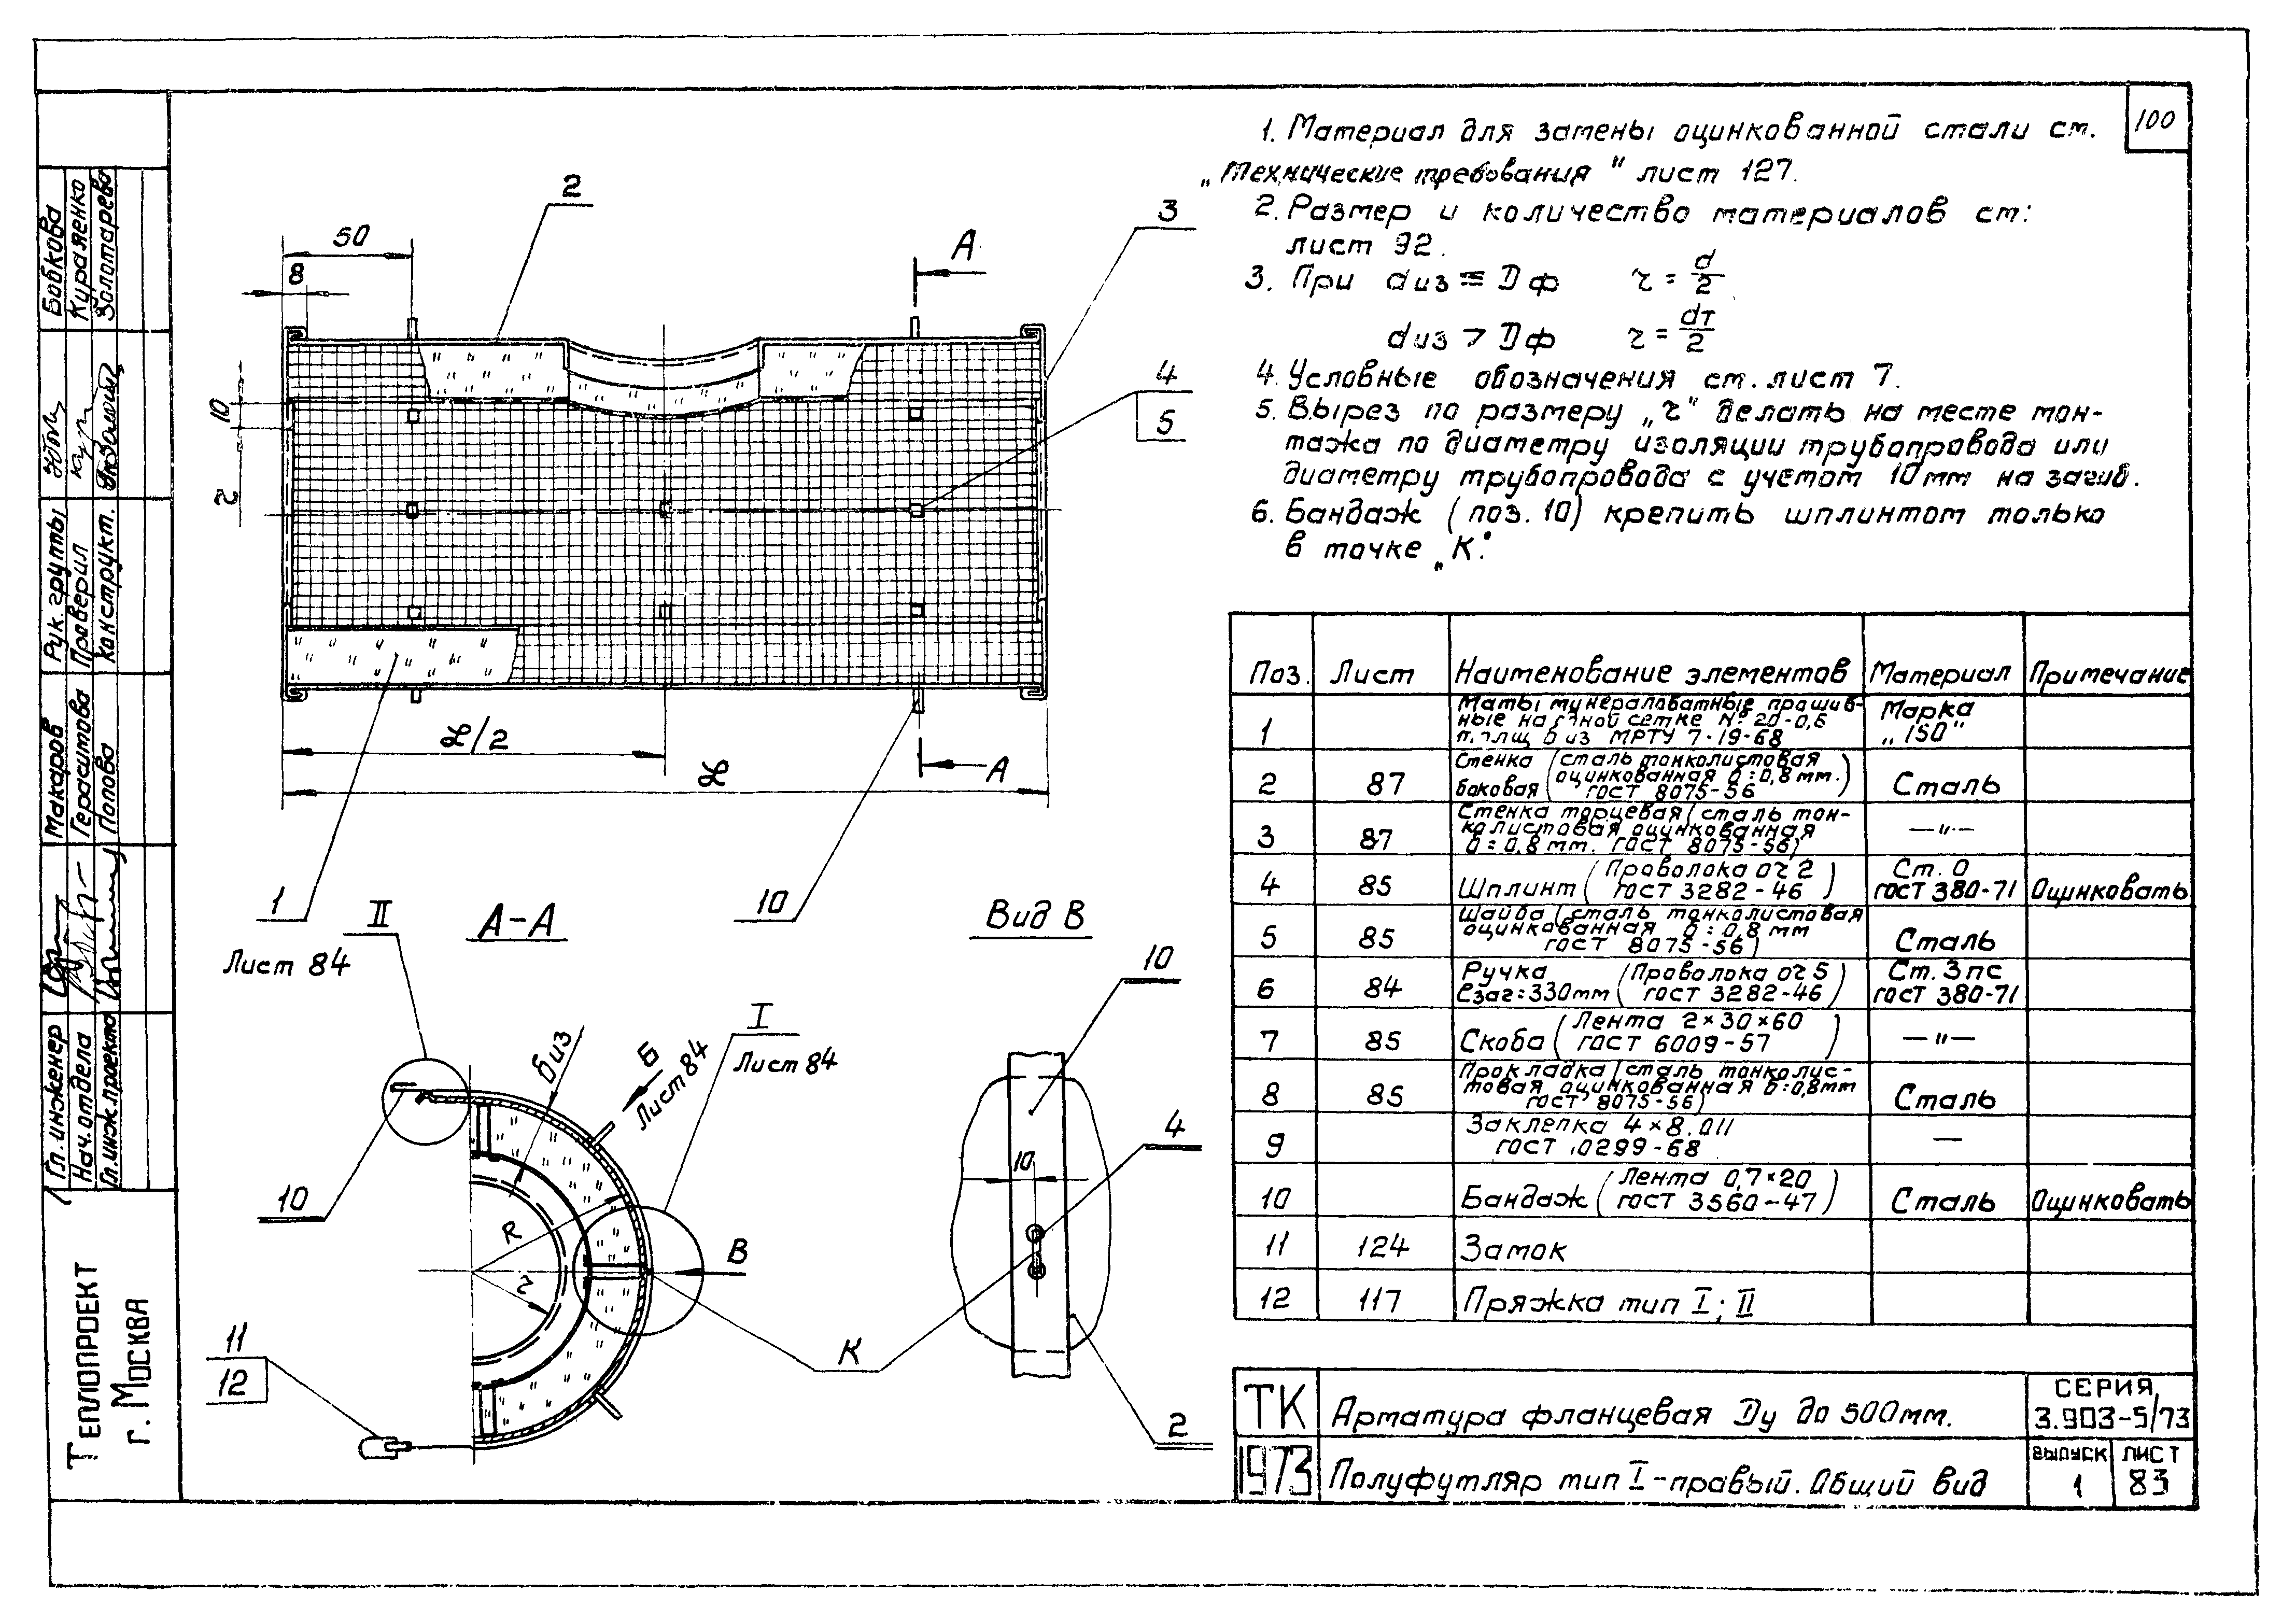 100
1. Материал для замены оцинкованной стали см.
„Технические требования" лист 127.
2. Размер и количество материалов см:
лист 92.
3. При dиз ≡ Dф r = d/2
dиз > Dф r = dт/2
4. Условные обозначения см. лист 7.
5. Вырез по размеру „r" делать на месте мон-
тажа по диаметру изоляции трубопровода или
диаметру трубопровода с учетом 10мм на загиб.
6. Бандаж (поз. 10) крепить шплинтом только
в точке „К".
2
50
8
А
3
4
5
10
r
L/2
L
А
1
10
Лист 84
II
А-А
Вид В
I
Лист 84
δиз
Б
Лист 84
10
R
r
В
К
11
12
10
4
10
2
Поз. Лист Наименование элементов Материал Примечание
1 Маты минераловатные прошив-
ные на сетке № 20-0,6
δиз МРТУ 7-19-68 Марка „150"
2 87 Стенка боковая (сталь тонколистовая
оцинкованная δ=0,8мм.
ГОСТ 8075-56) Сталь
3 87 Стенка торцевая (сталь тон-
колистовая оцинкованная
δ=0,8мм. ГОСТ 8075-56) —"—
4 85 Шплинт (Проволока оч 2
ГОСТ 3282-46) Ст. 0 ГОСТ 380-71 Оцинковать
5 85 Шайба (сталь тонколистовая
оцинкованная δ=0,8мм
ГОСТ 8075-56) Сталь
6 84 Ручка (Проволока оч 5
ℓзаг=330мм ГОСТ 3282-46) Ст. 3пс ГОСТ 380-71
7 85 Скоба (Лента 2×30×60
ГОСТ 6009-57) —"—
8 85 Прокладка (сталь тонколис-
товая оцинкованная δ=0,8мм
ГОСТ 8075-56) Сталь
9 Заклепка 4×8.011
ГОСТ 10299-68 —
10 Бандаж (Лента 0,7×20
ГОСТ 3560-47) Сталь Оцинковать
11 124 Замок
12 117 Пряжка тип I; II
ТК Арматура фланцевая Dу до 500мм. СЕРИЯ 3.903-5/73
1973 Полуфутляр тип I-правый. Общий вид ВЫПУСК 1 ЛИСТ 83
Гл. инженер Макаров
Нач. отдела Герасимова
Гл. инж. проекта Попова
Рук. группы Бобкова
Проверил
Конструкт. Золотарева
ТЕПЛОПРОЕКТ
г. МОСКВА